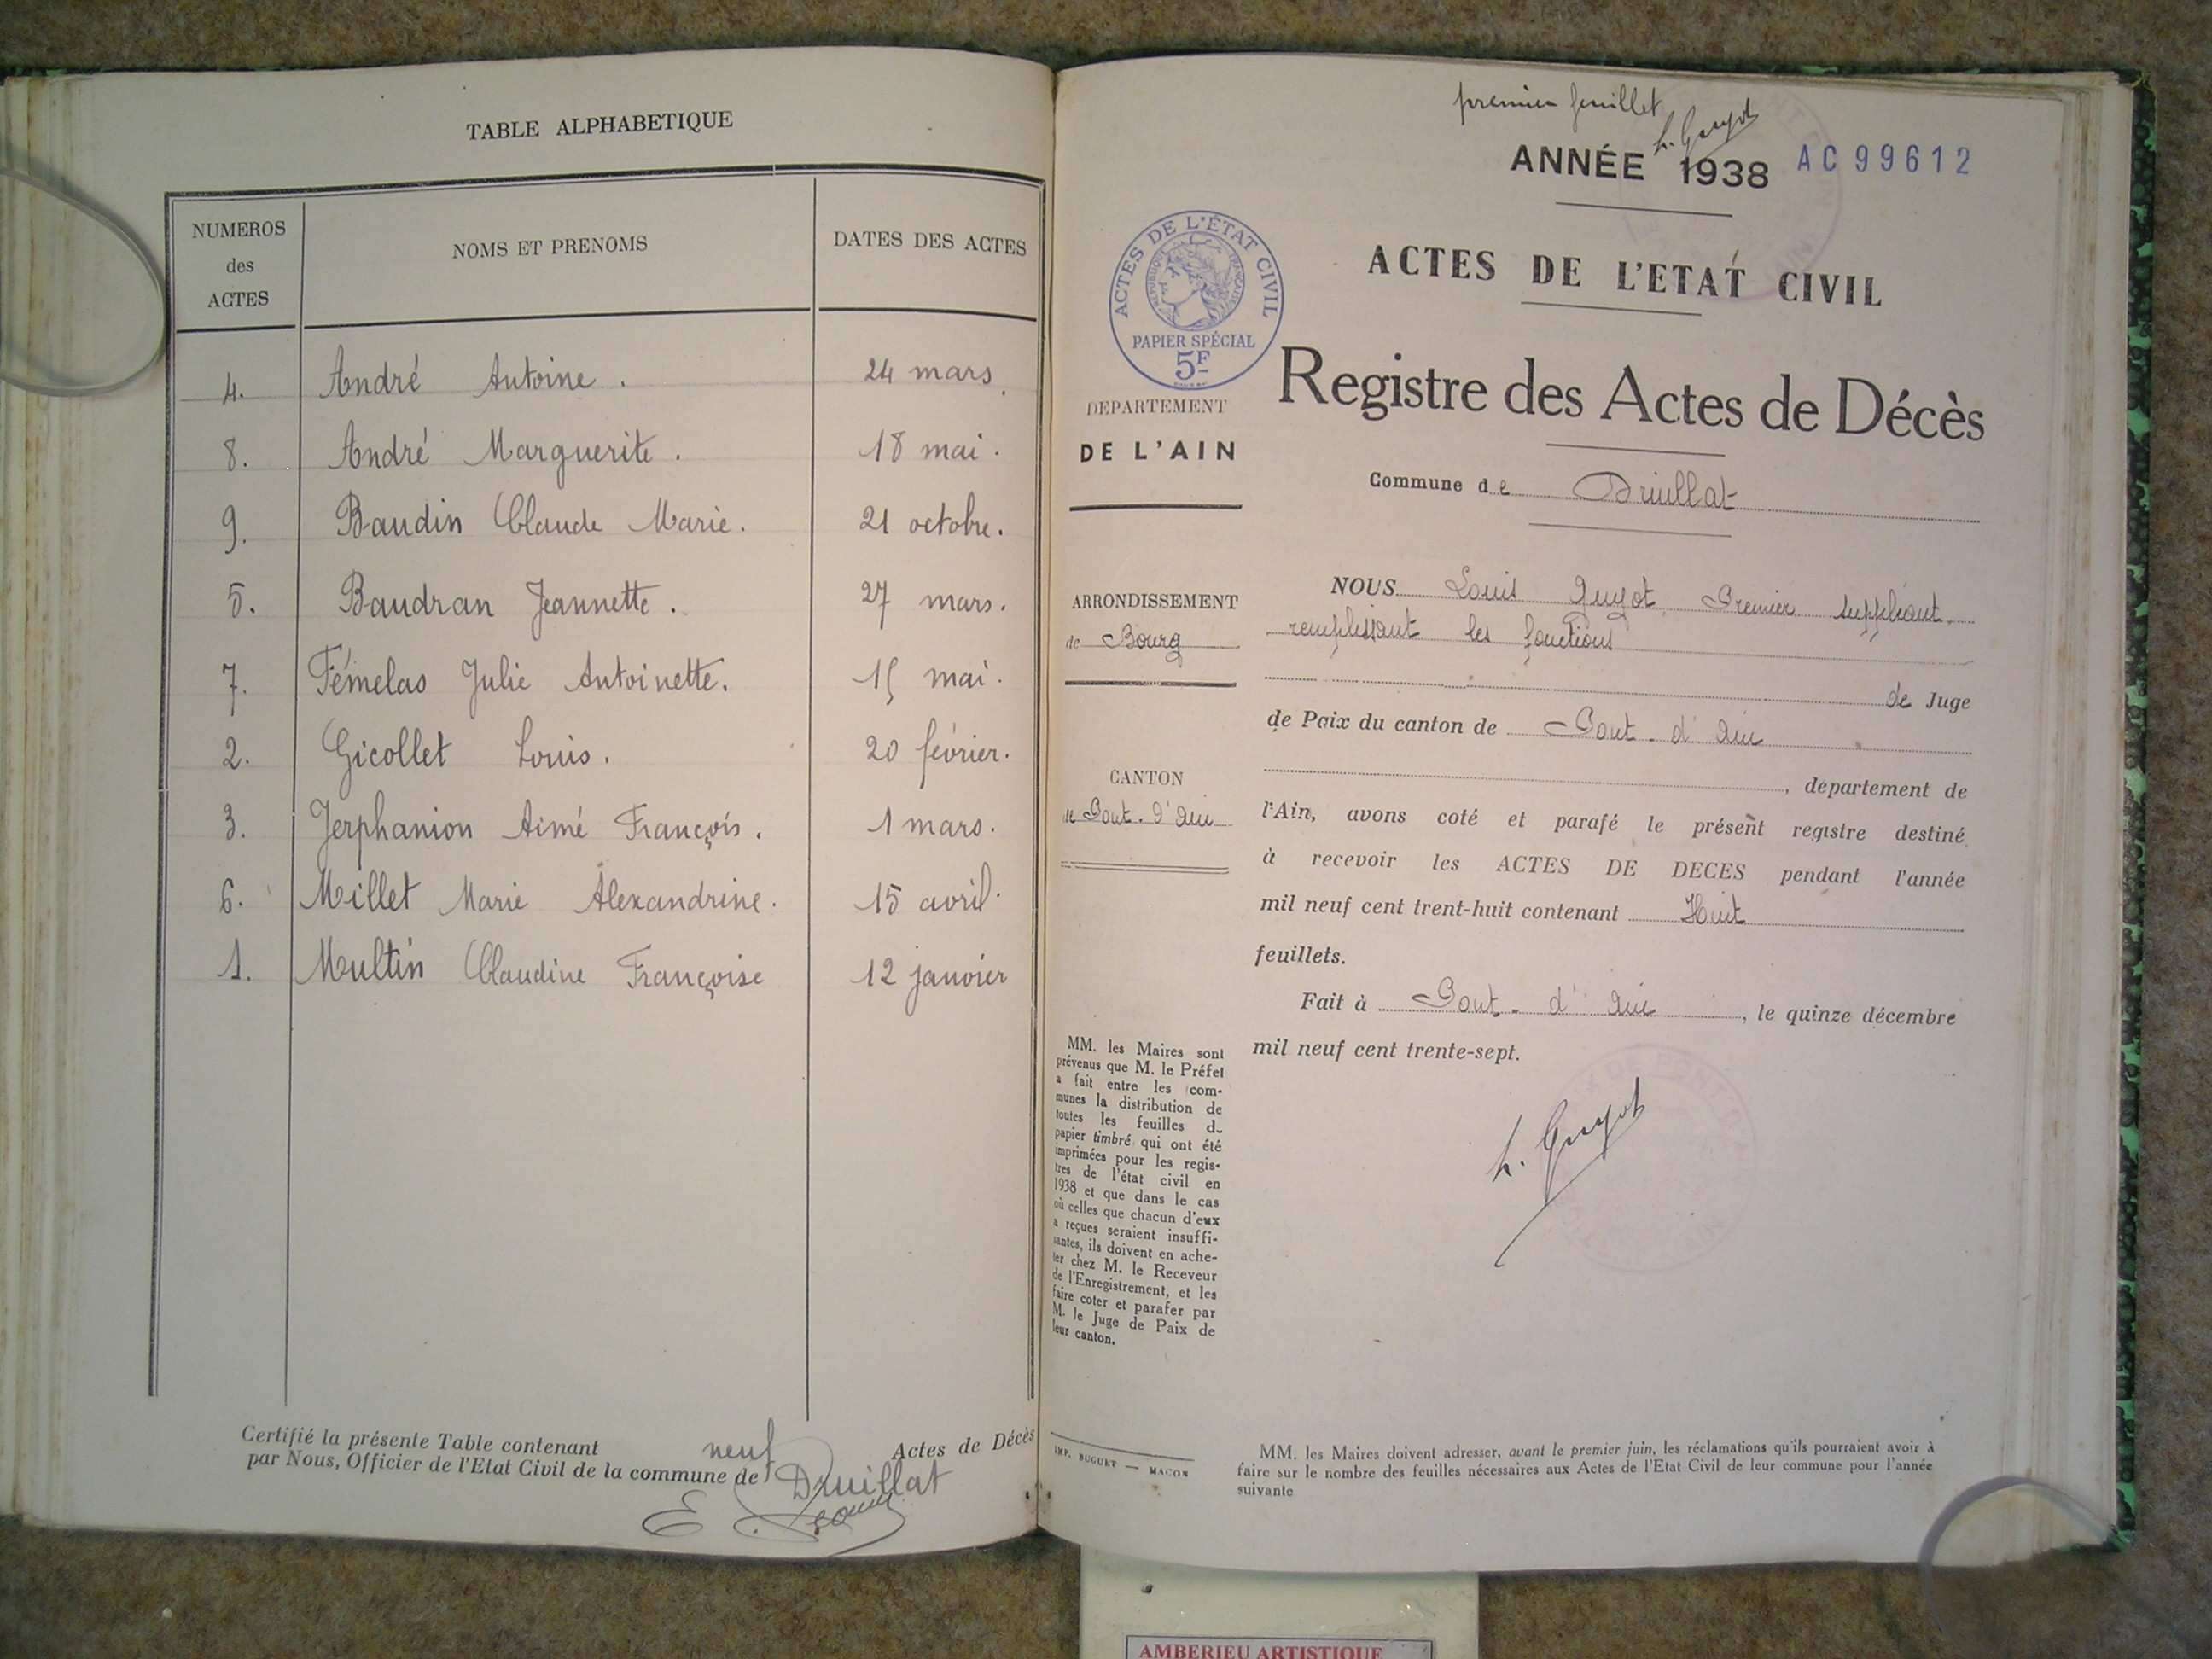 TABLE ALPHABETIQUE
NUMEROS
des
ACTES
NOMS ET PRENOMS
DATES DES ACTES
4. André Antoine. 24 mars.
8. André Marguerite. 18 mai.
9. Baudin Claude Marie. 21 octobre.
5. Baudran Jeannette. 27 mars.
7. Fémelas Julie Antoinette. 15 mai.
2. Gicollet Louis. 20 février.
3. Jerphanion Aimé François. 1 mars.
6. Millet Marie Alexandrine. 15 avril.
1. Multin Claudine Françoise 12 janvier
Certifié la présente Table contenant neuf Actes de Décès
par Nous, Officier de l'Etat Civil de la commune de Druillat
premier feuillet
L. Guyot
ANNÉE 1938
AC 99612
ACTES DE L'ÉTAT CIVIL
RÉPUBLIQUE FRANÇAISE
PAPIER SPÉCIAL
5F
ACTES DE L'ETAT CIVIL
Registre des Actes de Décès
DEPARTEMENT
DE L'AIN
Commune de Druillat
ARRONDISSEMENT
de Bourg
CANTON
de Pont-d'Ain
NOUS Louis Guyot, Premier suppléant
remplissant les fonctions
de Juge
de Paix du canton de Pont-d'Ain
, departement de
l'Ain, avons coté et parafé le présent registre destiné
à recevoir les ACTES DE DECES pendant l'année
mil neuf cent trent-huit contenant Huit
feuillets.
Fait à Pont-d'Ain, le quinze décembre
mil neuf cent trente-sept.
L. Guyot
MM. les Maires sont
prévenus que M. le Préfet
a fait entre les com-
munes la distribution de
toutes les feuilles d
papier timbré qui ont été
imprimées pour les regis-
tres de l'état civil en
1938 et que dans le cas
où celles que chacun d'eux
a reçues seraient insuffi-
santes, ils doivent en ache-
ter chez M. le Receveur
de l'Enregistrement, et les
faire coter et parafer par
M. le Juge de Paix de
leur canton.
IMP. BUGUET — MACON
MM. les Maires doivent adresser, avant le premier juin, les réclamations qu'ils pourraient avoir à
faire sur le nombre des feuilles nécessaires aux Actes de l'Etat Civil de leur commune pour l'année
suivante
AMBERIEU ARTISTIQUE